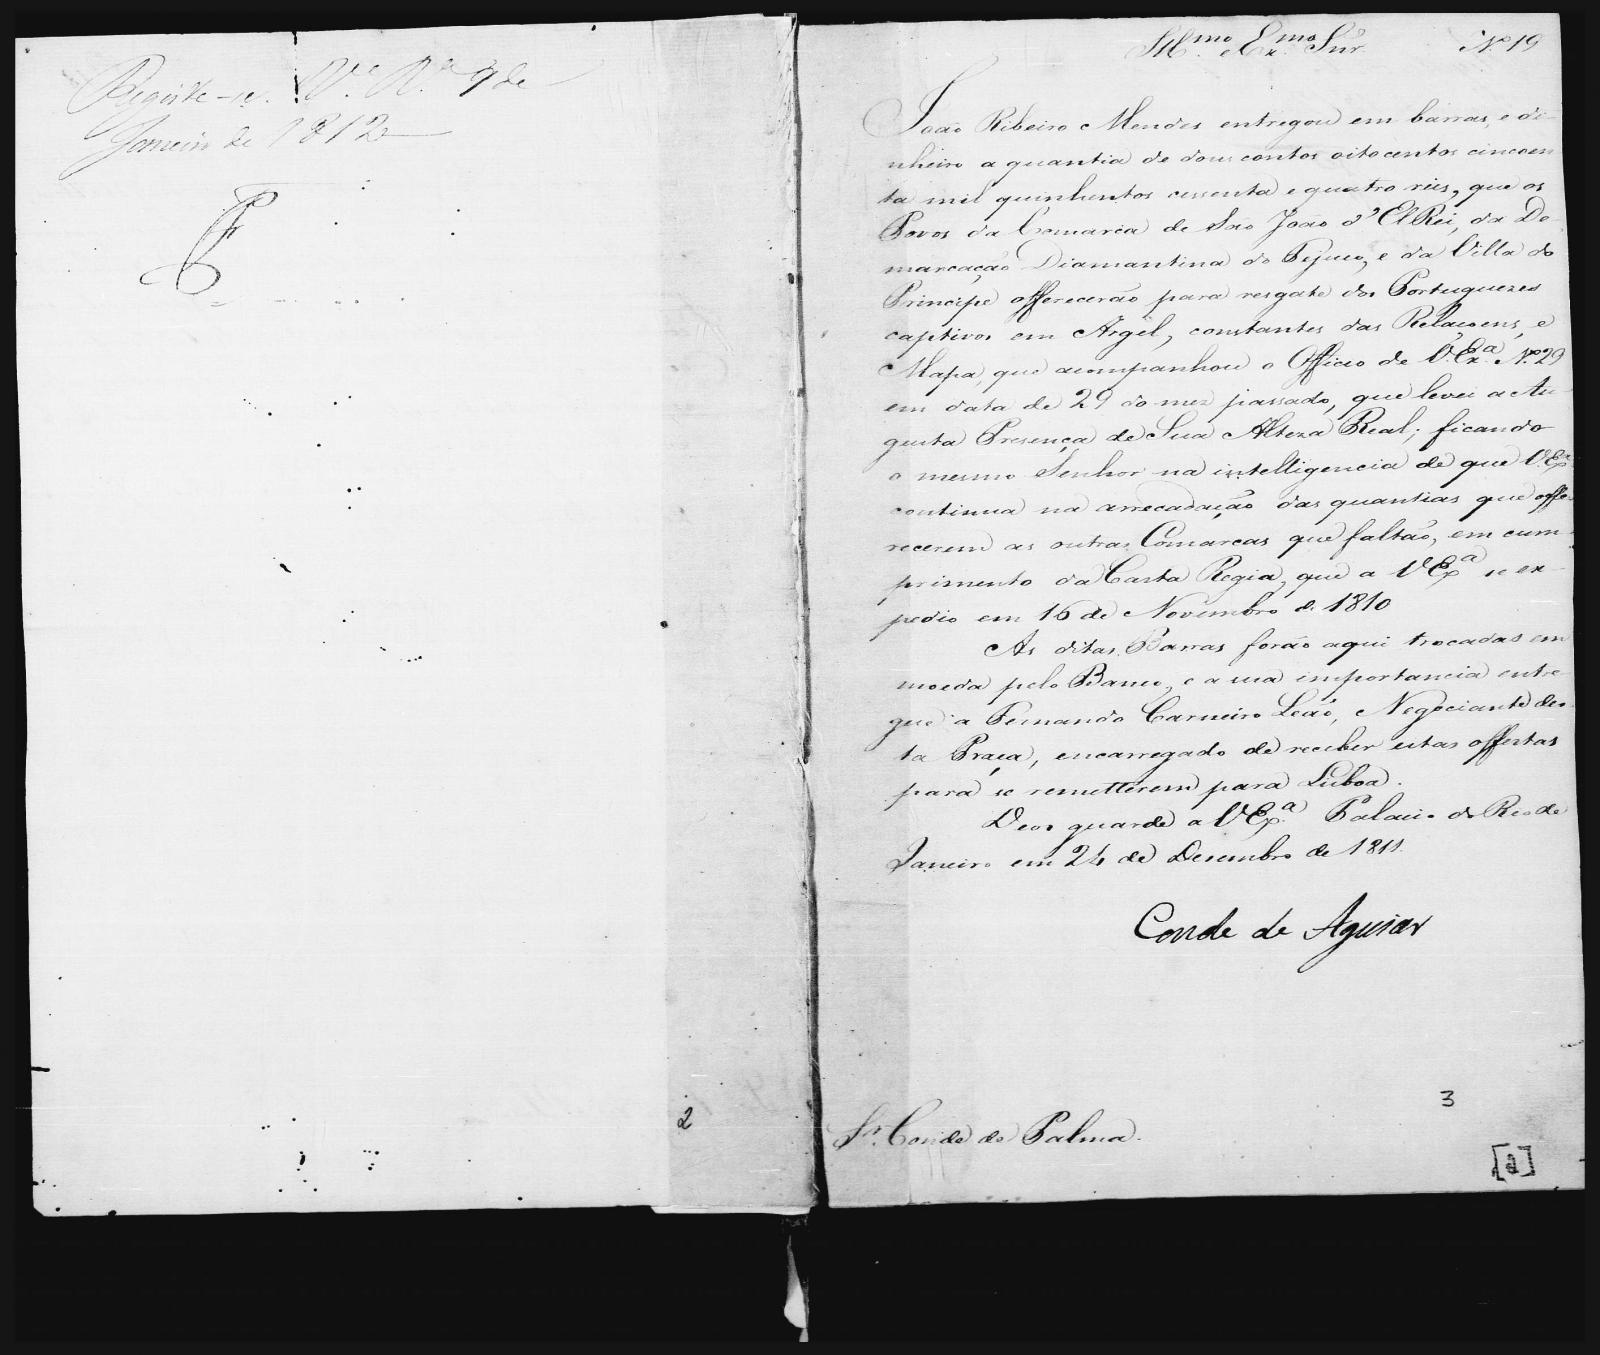 Registe-se. Vª Rª 9 de
Janeiro de 1812
2
Illmo. e Exmo. Snr.
Nº 19
João Ribeiro Mendes entregou em barras, e di-
nheiro a quantia de dous contos oitocentos cincoen
ta mil quinhentos cessenta e quatro reis, que os
Povos da Comarca de São João d'El Rei, da De-
marcação Diamantina do Tejuco, e da Villa do
Principe offerecerão para resgate dos Portuguezes
captivos em Argel, constantes das Relaçoens, e
Mapa, que acompanhou o Officio de V. Exª. Nº 29
em data de 29 do mez passado, que levei a Au-
gusta Presença de Sua Alteza Real; ficando
o mesmo Senhor na intelligencia de que V. Exª
continua na arrecadação das quantias que offe-
recerem as outras Comarcas que faltão, em cum-
primento da Carta Regia, que a V Exª se ex-
pedio em 16 de Novembro de 1810
As ditas Barras forão aqui trocadas em
moeda pelo Banco, e a sua importancia entre
gue a Fernando Carneiro Leão, Negociante des-
ta Praça, encarregado de receber estas offertas
para se remetterem para Lisboa.
Deos guarde a V Exª. Palacio do Rio de
Janeiro em 24 de Desembro de 1811.
Conde de Aguiar
3
Sr. Conde de Palma.
[2]